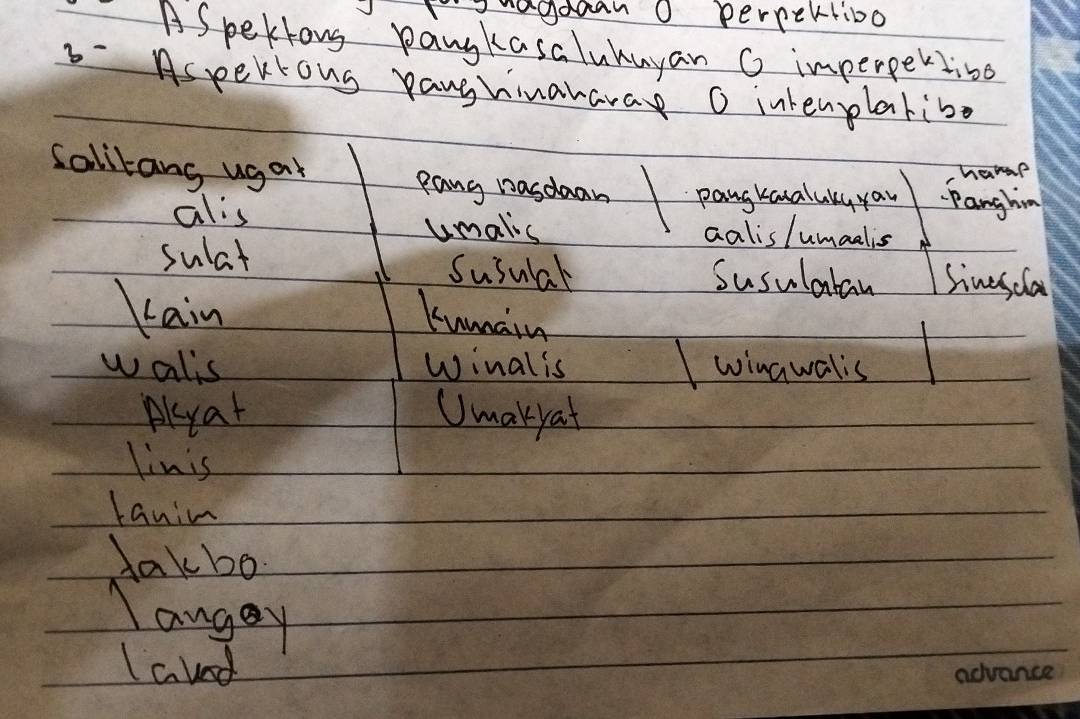 pangnagdaan O perpektibo
Aspektong pangkasalukuyan O imperpektibo
3- Aspektong panghinaharap O intemplatibo
Salitang ugat pang nagdaan pangkasalukuyan -harap -Panghin
alis umalis aalis/umaalis
sulat susulat susulatan
kain kumain
walis winalis winawalis
Akyat Umakyat
linis
tanim
takbo.
langoy
lakad
advance